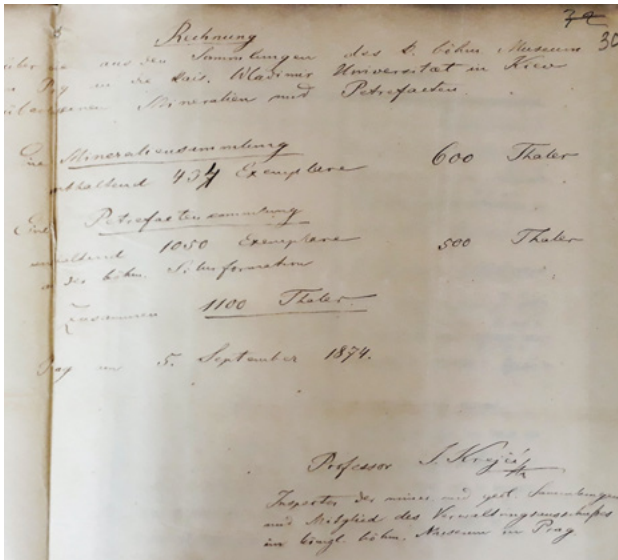 32
30
Rechnung
über die aus den Sammlungen des k. böhm Museum
in Prag an die kais. Wladimir Universität in Kiew
überlassenen Mineralien und Petrefacten.
Eine Mineraliensammlung
enthaltend 437 Exemplare 600 Thaler
Eine Petrefactensammlung
enthaltend 1050 Exemplare 500 Thaler
der böhm. Silurformation
Zusammen 1100 Thaler
Prag am 5. September 1874.
Professor J. Krejčí
Inspector der miner. und geol. Sammlungen
und Mitglied des Verwaltungsausschußes
im königl. böhm. Museum in Prag.